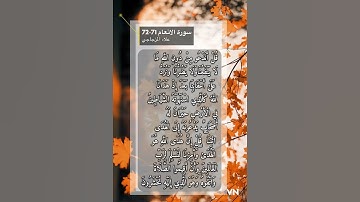 سورة الانعام 71-72
علاء المزجاجي
قُلْ أَنَدْعُو مِن دُونِ اللَّهِ مَا
لَا يَنفَعُنَا وَلَا يَضُرُّنَا وَنُرَدُّ
عَلَىٰ أَعْقَابِنَا بَعْدَ إِذْ هَدَانَا
اللَّهُ كَالَّذِي اسْتَهْوَتْهُ الشَّيَاطِينُ
فِي الْأَرْضِ حَيْرَانَ لَهُ
أَصْحَابٌ يَدْعُونَهُ إِلَى الْهُدَى
ائْتِنَا قُلْ إِنَّ هُدَى اللَّهِ هُوَ
الْهُدَى وَأُمِرْنَا لِنُسْلِمَ لِرَبِّ
الْعَالَمِينَ وَأَنْ أَقِيمُوا الصَّلَاةَ
وَاتَّقُوهُ وَهُوَ الَّذِي إِلَيْهِ تُحْشَرُونَ
VN